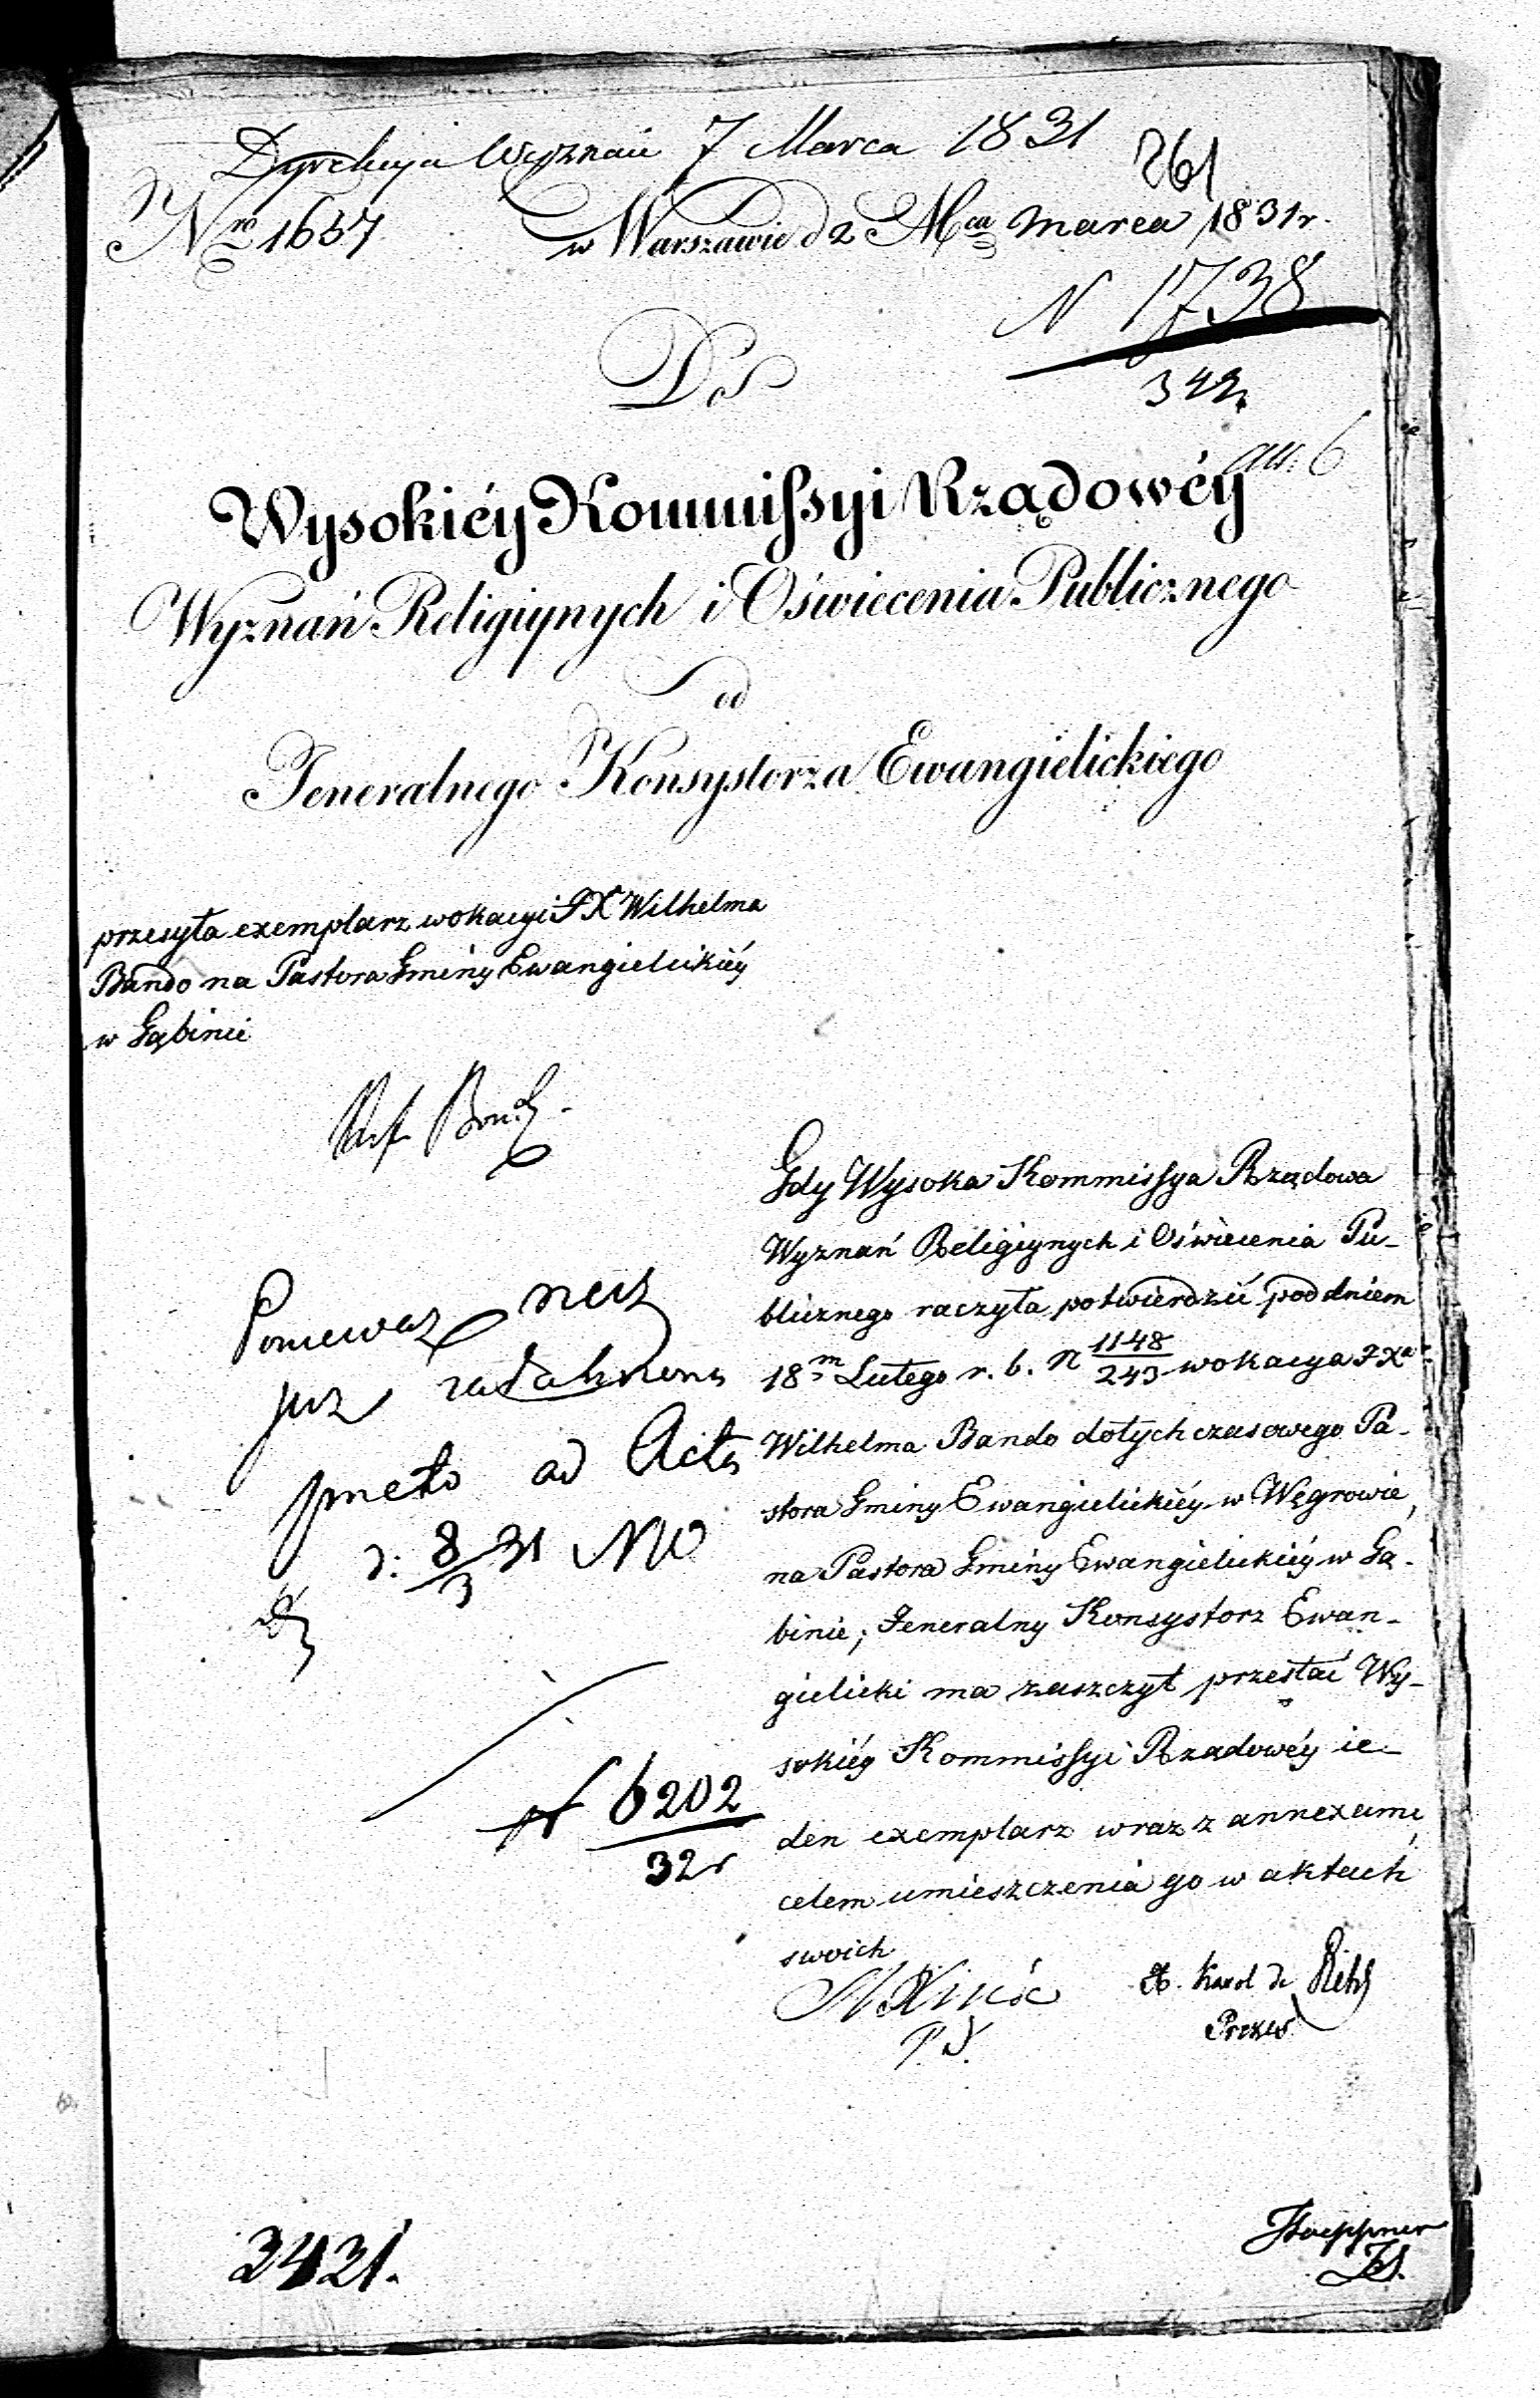 Dyrekcya Wyznań 7 Marca 1831
261
Nro 1637 w Warszawie d 2 Mca marca 1831 r.
N 1738
342
Do
an: 6
Wysokiéy Kommissyi Rządowéy
Wyznań Religiynych i Oświecenia Publicznego
od
Jeneralnego Konsystorza Ewangielickiego
przesyła exemplarz wokacyi JXa Wilhelma
Bando na Pastora Gminy Ewangielickiéy
w Gąbinie
Gdy Wysoka Kommissya Rządowa
Wyznań Religiynych i Oświecenia Pu-
blicznego raczyła potwierdzić pod dniem
18m Lutego r. b. N 1148/243 wokacya JXa
Wilhelma Bando dotychczasowego Pa-
stora Gminy Ewangielickiéy w Węgrowie,
na Pastora Gminy Ewangielickiéy w Gą-
binie; Jeneralny Konsystorz Ewan-
gielicki ma zaszczyt przesłać Wy-
sokiéy Kommissyi Rządowéy ie-
den exemplarz wraz z annexami
celem umieszczenia go w aktach
swoich
Ponieważ rzecz
już załatwiona
ad Acta
d. 8/3 31
N 6202
32r
X. Karol de
Prezes
P. J.
3421.
Hoeppner
JS.